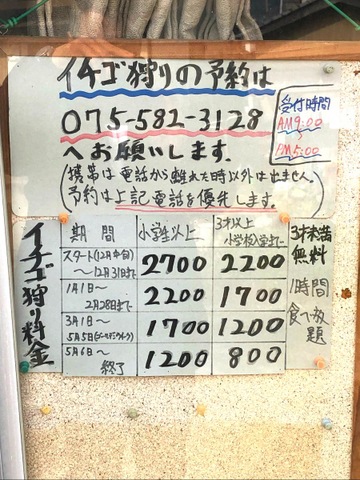 イチゴ狩りの予約は
075-582-3128
へお願いします。
受付時間
AM9:00
〜
PM5:00
(携帯は電話から離れた時以外は出ません。
予約は上記電話を優先します。)
イチゴ狩り料金
期間 小学生以上 3才以上小学校入学まで
スタート(12月中旬)〜12月31日まで 2700 2200
1月1日〜2月28日まで 2200 1700
3月1日〜5月5日(ゴールデンウィーク) 1700 1200
5月6日〜終了 1200 800
3才未満無料
1時間食べ放題